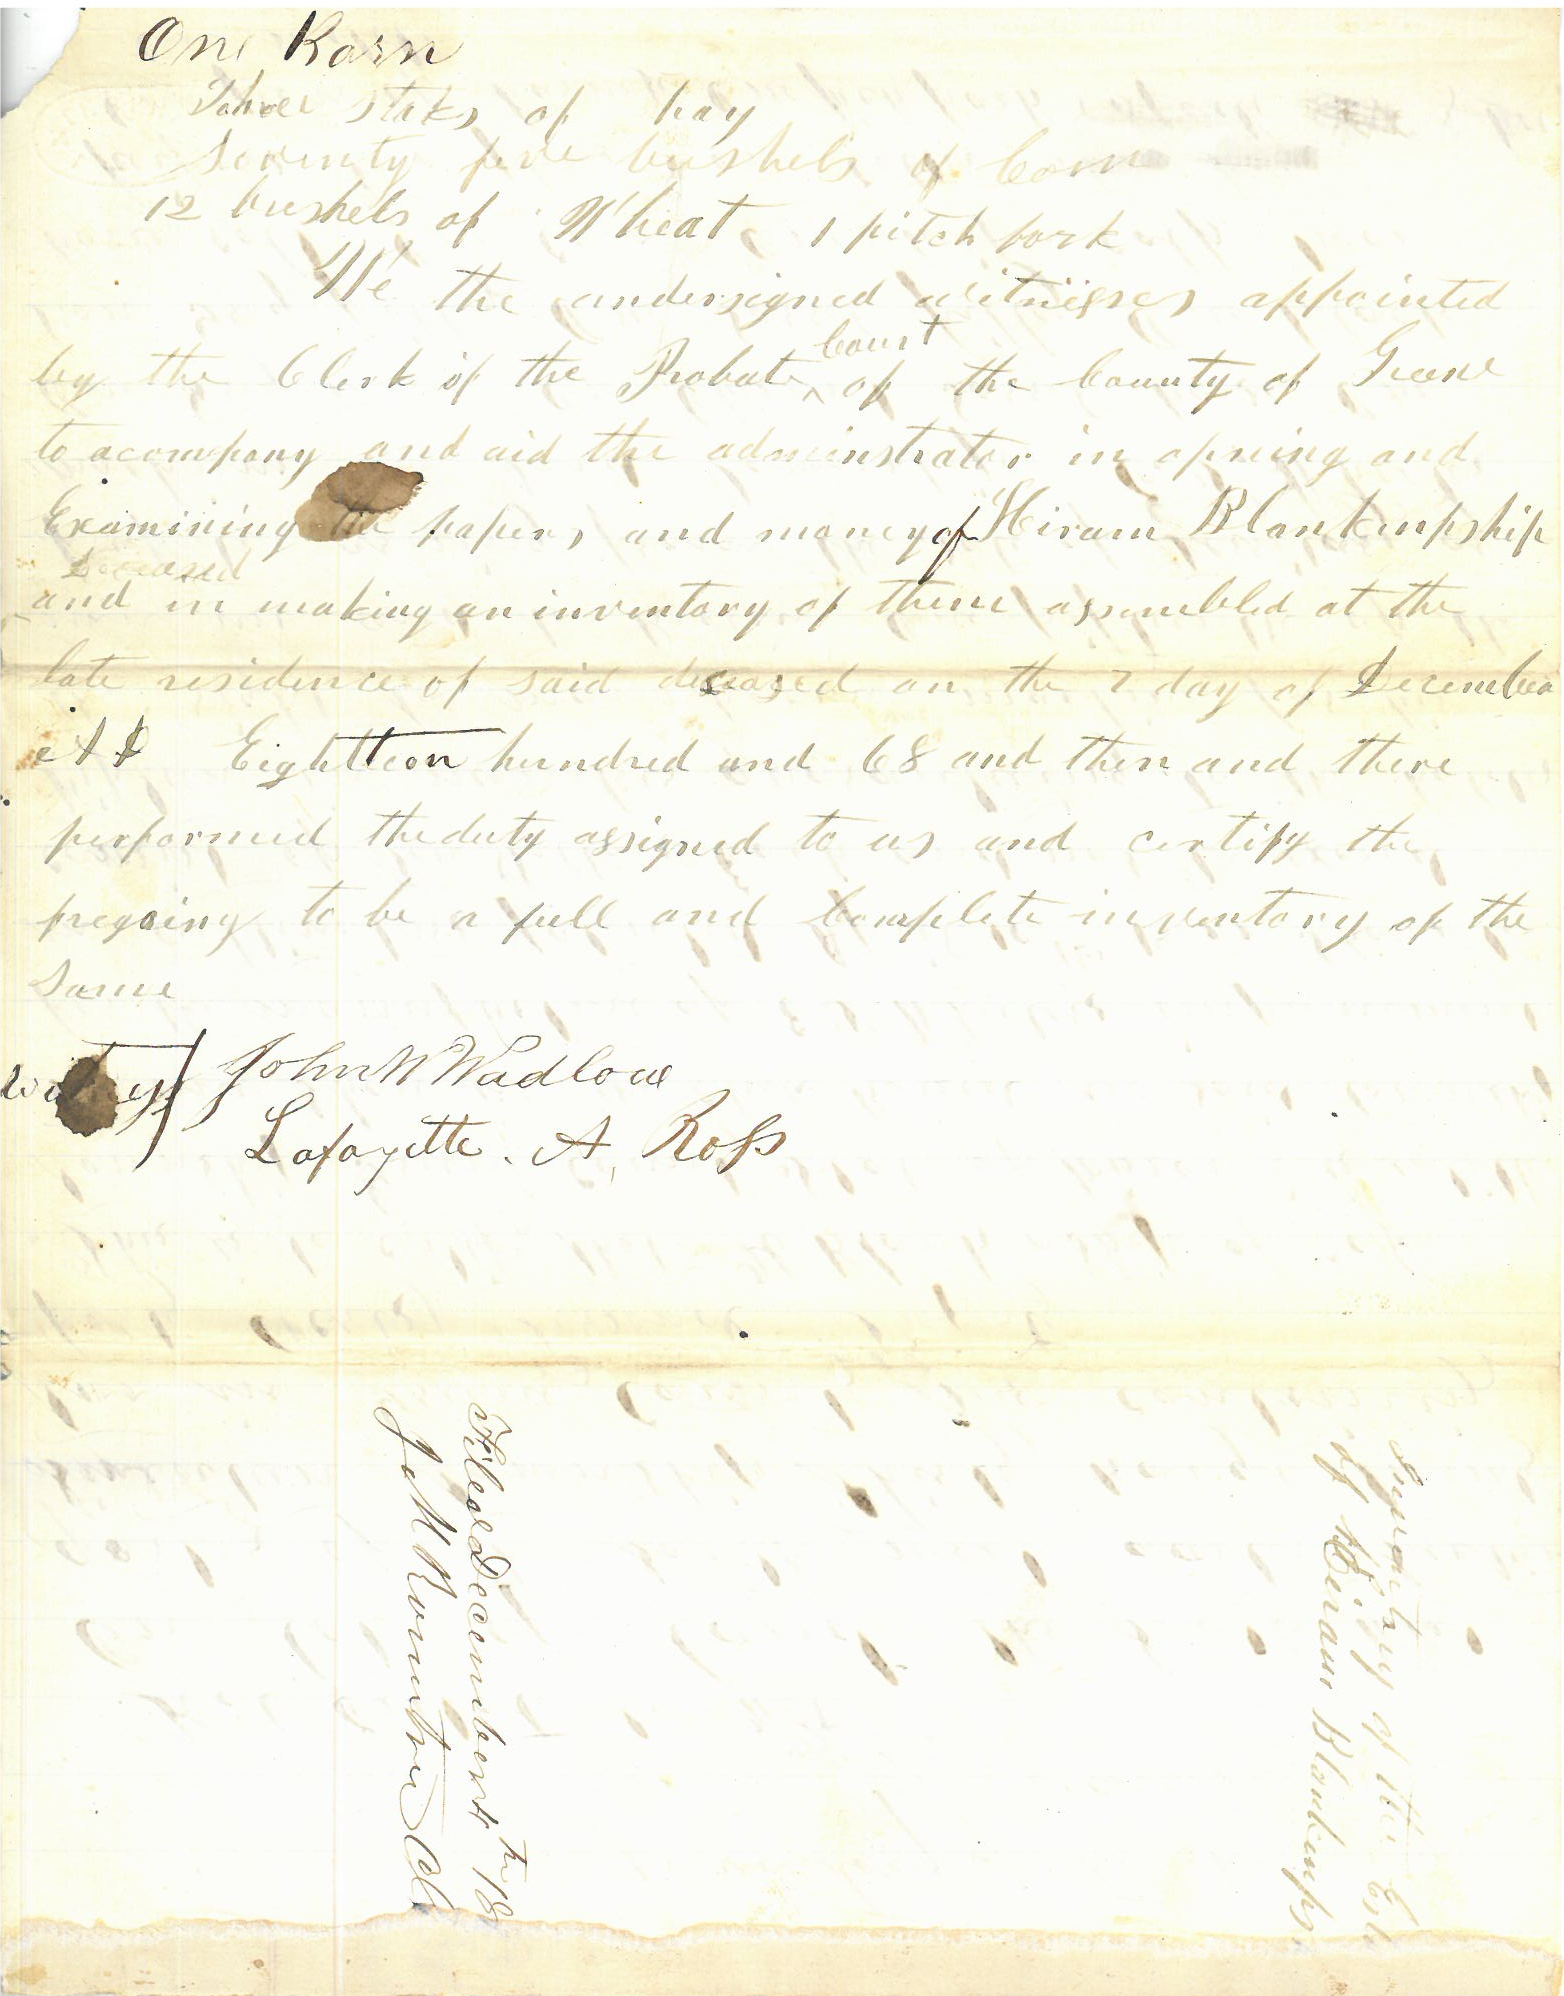 One Barn
Three staks of hay
Seventy five bushels of Corn
12 bushels of Wheat 1 pitch fork
We the undersigned witnesses appointed
by the Clerk of the Probate ^ Court of the County of Greene
to acompany and aid the adminstrator in opning and
Examining the papers and money of Hiram Blankinpship
Deceased
and in making an inventory of theme assembled at the
late residence of said deceased on the 7 day of December
AD Eightteen hundred and 68 and then and there
performed the duty assigned to us and certify the
fregoing to be a full and Complete inventory of the
same
John W Wadlow
Lafayette . A, Ross
Filed December 7th 18
J M Rountree Cl
Inventory of the Est
of Hiram Blankinps